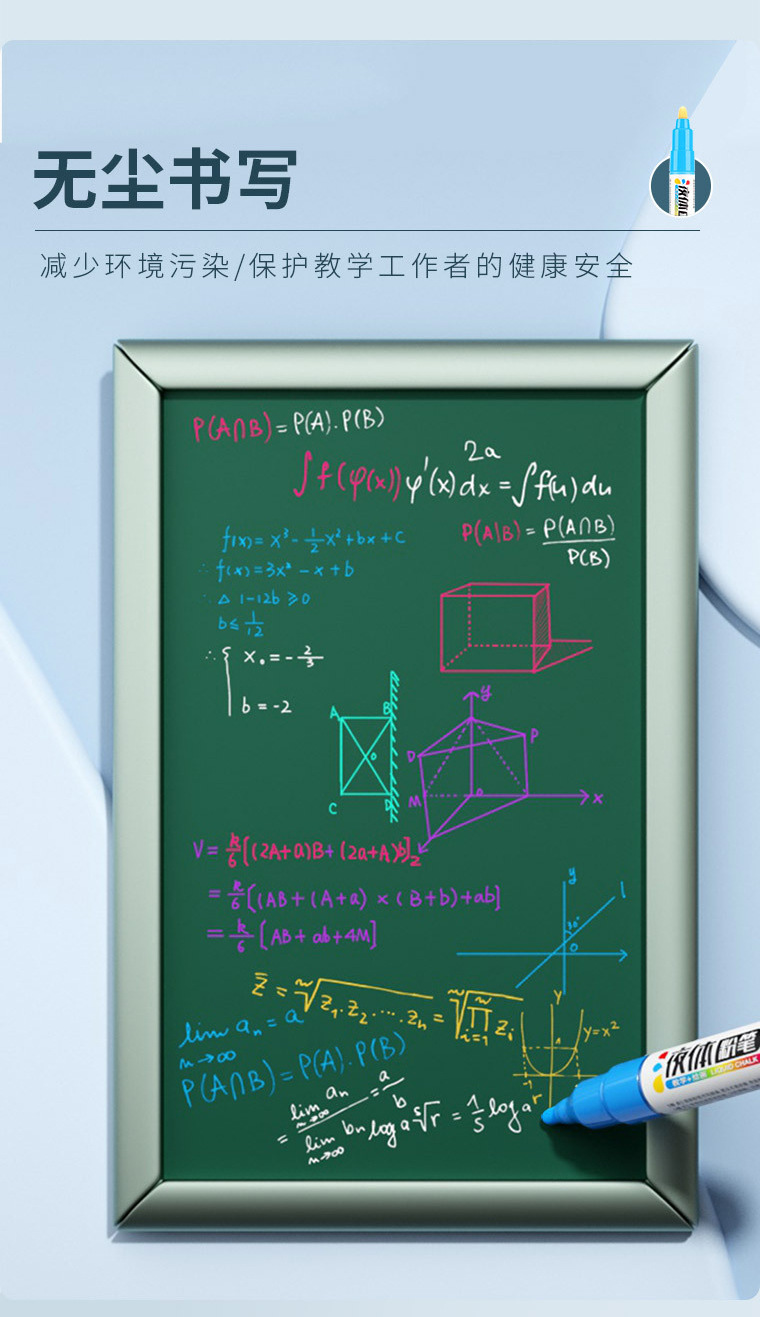 无尘书写
减少环境污染/保护教学工作者的健康安全
P(A∩B)=P(A).P(B)
2a
∫f(φ(x))φ'(x)dx=∫f(u)du
P(A|B)=P(A∩B)/P(B)
f(x)=x³-1/2x²+bx+c
∴f(x)=3x²-x+b
∴△1-12b≥0
b≤1/12
∴{x₀=-2/3
b=-2
A B
O
C D
y
D P
M o x
V=k/6[(2A+a)B+(2a+A)b]₂
=k/6[(AB+(A+a)×(B+b)+ab]
=k/6[AB+ab+4M]
y l
30°
O
z̄=ⁿ√z₁.z₂.....zₙ=ⁿ√∏ᵢ₌₁ⁿzᵢ
lim aₙ=a
n→∞
P(A∩B)=P(A).P(B)
y
y=x²
1
-1
=lim aₙ/lim bₙ=a/b
n→∞
n→∞
log a⁵√r=1/5 log aʳ
液体粉笔
教学+绘画 LIQUID CHALK
液体